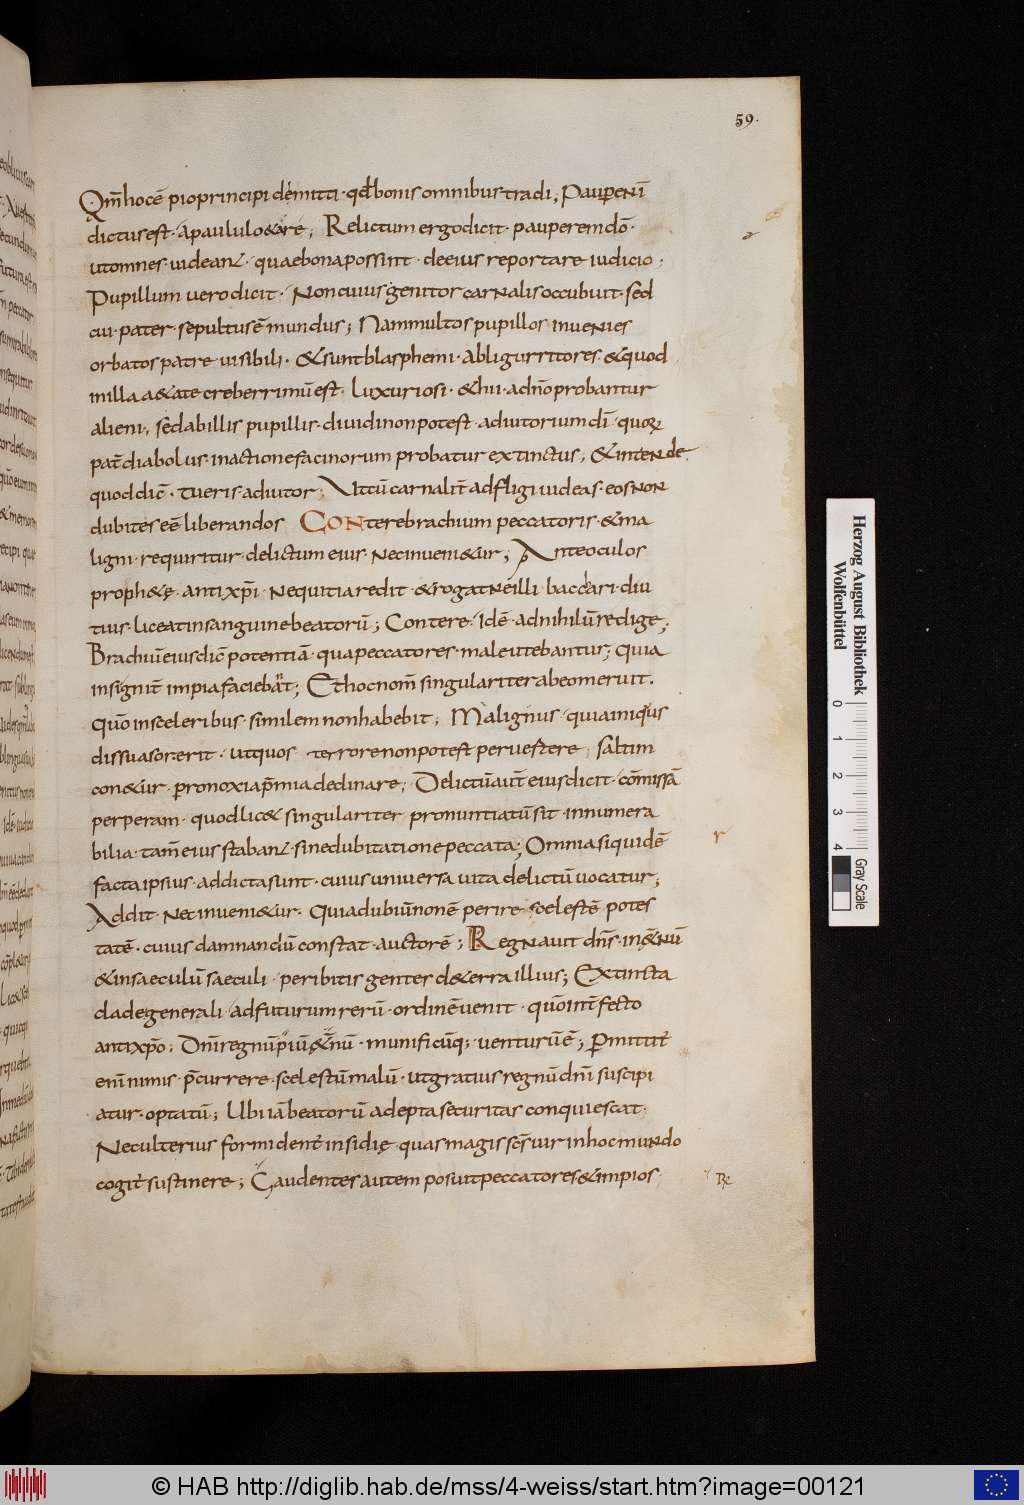 59.
Qm̄ hoc eē pio principi demitti · qd̄ bonis omnibus tradi; Pauper enī
dictus est · a paululo &are; Relictum ergo dicit · pauperem dō ·
ut omnes · uideant · quae bona possint · de eius reportare iudicio ·
Pupillum uero dicit · Non cuius genitor carnalis occubuit · sed
cui · pater · sepultus ē mundus; Nam multos pupillos inuenies
orbatos patre uisibili · & sunt blasphemi · abligurritores · & quod
in illa a&ate creberrimū est · luxuriosi · & hii · ad nō probantur
alieni · sed ab illis pupillis · diuidi non potest · adiutorium dī · quoꝝ
pat̄ diabolus · in actione facinorum probatur extinctus; & intende
quod dic̄ · tu eris adiutor; Ut cū carnalit̄ adfligi uideas · eos non
dubites eē liberandos CONtere brachium peccatoris · & ma
ligni · requiritur · delictum eius · nec inueni&ur; Ante oculos
proph&ę · antixp̄i · nequitia redit · & rogat ne illi bacchari · diu
tius · liceat in sanguine beatorū; Contere · idē · ad nihilū redige;
Brachiū eius dic̄ potentiā · qua peccatores · male utebantur; quia
insignit̄ impia faciebāt; Et hoc nom̄ singulariter ab eo meruit.
Quō in sceleribus · similem non habebit; Malignus · quia iniquus
dissuasor erit · ut quos terrore non potest peruertere; saltim
con&ur · pro noxia p̄mia declinare; Delictū aut̄ eius dicit · cōmissā
perperam · quod lic& singulariter pronuntiatū sit · innumera
bilia · tam̄ eius stabant · sine dubitatione peccata; Omnia siquidē
facta ipsius · addicta sunt · cuius uniuersa uita delictū uocatur;
Addit · nec inueni&ur · Quia dubiū non ē perire scelestē potes
tatē · cuius damnandū constat · auctorē; Regnauit dn̄s · in &̄nū
& in saeculū saeculi · peribitis gentes de &erra illius; Extincta
clade generali · ad futurum rerū · ordinē uenit · quō int̄fecto
antixp̄o; Dn̄i regnū piū &&̄nū · munificūq; · uenturū ē; Pmittit̄
eni nimis · p̄currere · scelestū malū · ut gratius regnū dn̄i suscipi
atur · optatū; Ubi iā beatorū adepta securitas conquiescat ·
Nec ulterius formident̄ insidię · quas magis sc̄s uir in hoc mundo
cogit̄ sustinere; Gaudentes autem posuit peccatores & impios ·
r
Rɛ
Herzog August Bibliothek
Wolfenbüttel
0 1 2 3 4
Gray Scale
© HAB http://diglib.hab.de/mss/4-weiss/start.htm?image=00121